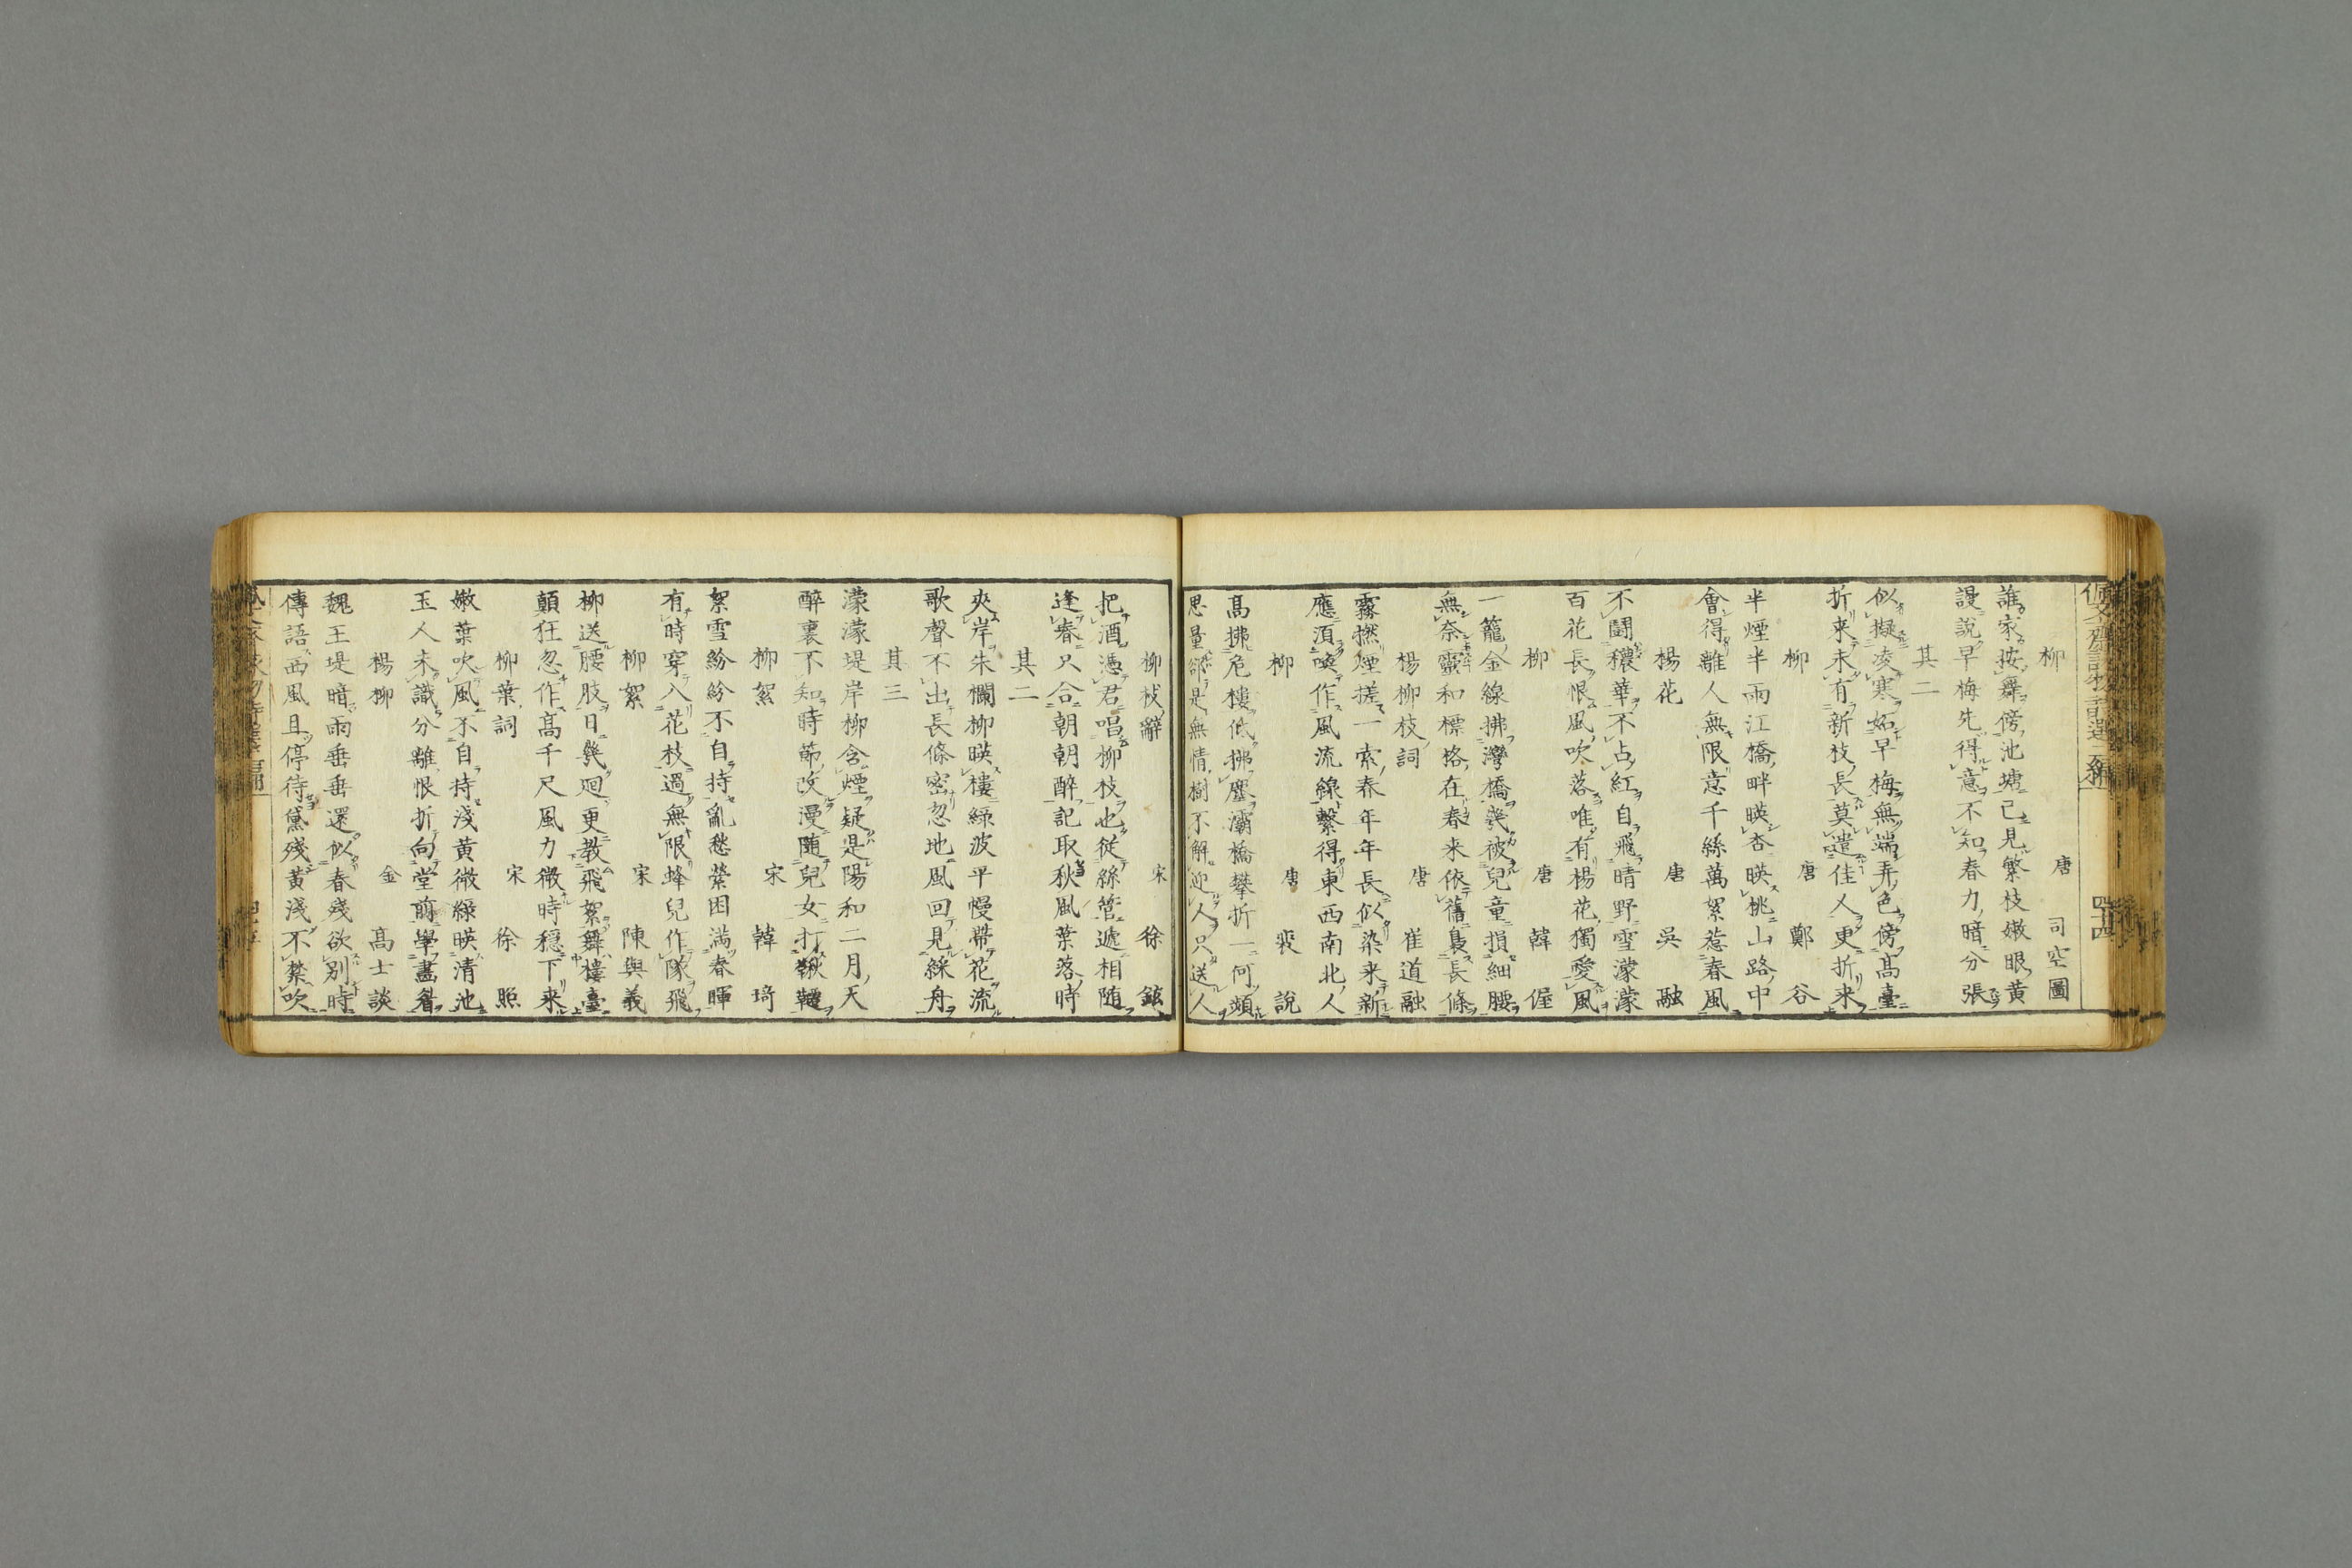 柳 唐 司空圖
誰家按舞傍池塘已見繁枝嫩眼黃
謾說早梅先得意不知春力暗分張
其二
似擬凌寒妬早梅無端弄色傍高臺
折來未有新枝長莫遣佳人更折來
柳 唐 鄭谷
半煙半雨江橋畔暎杏暎桃山路中
會得離人無限意千絲萬絮惹春風
楊花 唐 吳融
不鬪穠華不占紅自飛晴野雪濛濛
百花長恨風吹落唯有楊花獨愛風
柳 唐 韓偓
一籠金線拂灣橋幾被兒童損細腰
無奈靈和標格在春来依舊裊長條
楊柳枝詞 唐 崔道融
霧撚煙搓一索春年年長似染来新
應須喚作風流線繫得東西南北人
柳 唐 裴說
高拂危樓低拂塵灞橋攀折一何頻
思量卻是無情樹不解迎人只送人
柳枝辭 宋 徐鉉
把酒憑君唱柳枝也從絲管遞相随
逢春只合朝朝醉記取秋風葉落時
其二
夾岸朱欄柳暎樓綠波平慢帶花流
歌聲不出長條密忽地風回見綵舟
其三
濛濛堤岸柳含煙疑是陽和二月天
醉裏不知時節改漫随兒女打鞦韆
柳絮 宋 韓琦
絮雪紛紛不自持亂愁縈困滿春暉
有時穿入花枝過無限蜂兒作隊飛
柳絮 宋 陳與義
柳送腰肢日幾迴更教飛絮舞樓臺
顛狂忽作高千尺風力微時穩下来
柳葉詞 宋 徐照
嫩葉吹風不自持淺黃微綠暎清池
玉人未識分離恨折向堂前學畫眉
楊柳 金 高士談
魏王堤暗雨垂垂還似春殘欲別時
傳語西風且停待黛殘黃淺不禁吹